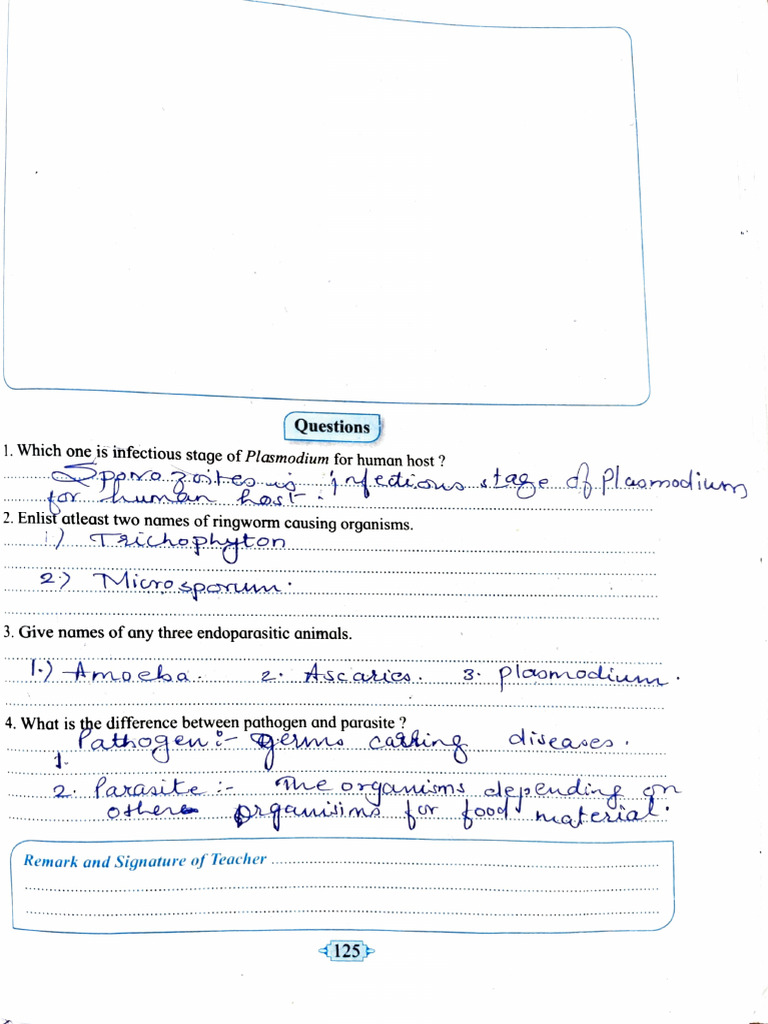 Questions
1. Which one is infectious stage of Plasmodium for human host ?
Sporozoites is infectious stage of Plasmodium
for human host.
2. Enlist atleast two names of ringworm causing organisms.
1) Trichophyton
2) Microsporum.
3. Give names of any three endoparasitic animals.
1.) Amoeba. 2. Ascaries. 3. plasmodium.
4. What is the difference between pathogen and parasite ?
1. Pathogen :- germs causing diseases.
2. Parasite :- The organisms depending on
other organisims for food material.
Remark and Signature of Teacher
125